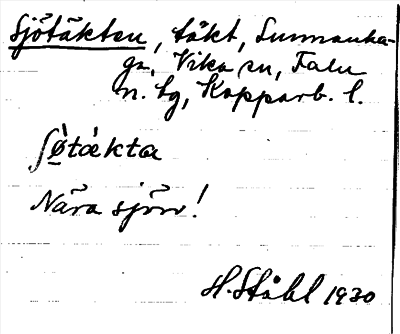 Sjötäkten, täkt, Sunnanha-
ga, Vika sn, Falu
n. tg, Kopparb. l.
ʃø̀tǽkta
Nära sjön!
H. Ståhl 1930